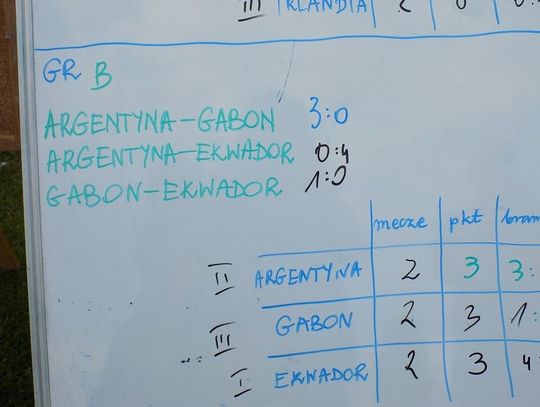 III IRLANDIA 2 0
GR B
ARGENTYNA-GABON 3:0
ARGENTYNA-EKWADOR 0:4
GABON-EKWADOR 1:0
mecze pkt bram
II ARGENTYNA 2 3 3:
III GABON 2 3 1:
I EKWADOR 2 3 4